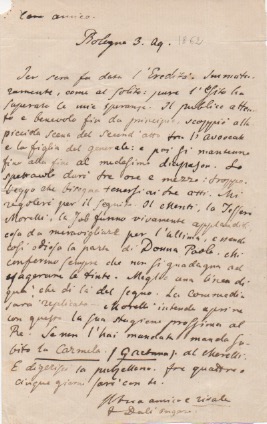 Caro amico.
Bologna 3. Ag. 1862
Ier sera fu data l'Eredità. Immatu-
ramente, come al solito: pure l'esito ha
superato le mie speranze. Il pubblico atten-
to e benevolo fin da principio, scoppiò alla
piccola scena del second'atto tra l'Avvocato
e la figlia del generale: e poi si mantenne
fino alla fine al medesimo diapason. Lo
spettacolo durò tre ore e mezzo: troppo.
Veggo che bisogna tenersi ai tre atti. Mi
regolerò per il seguito. Il Monti, la
Morelli, la Job furono vivamente applauditi,
cosa da maravigliare per l'ultima, essendo
così odiosa la parte di Donna Paola. Mi
confermo sempre che non si guadagna ad
esagerare le tinte. Meglio una linea di
quà che di là del segno. La commedia
sarà replicata - e Morelli intende aprire
con questa la sua stagione prossima al
Re. Se non l'hai mandata manda su-
bito la Carmela (Gaetana) al Morelli.
E digerisci la pulzellona. Fra quattro o
cinque giorni sarò con te.
Il tuo amico e rivale
Dall'Ongaro